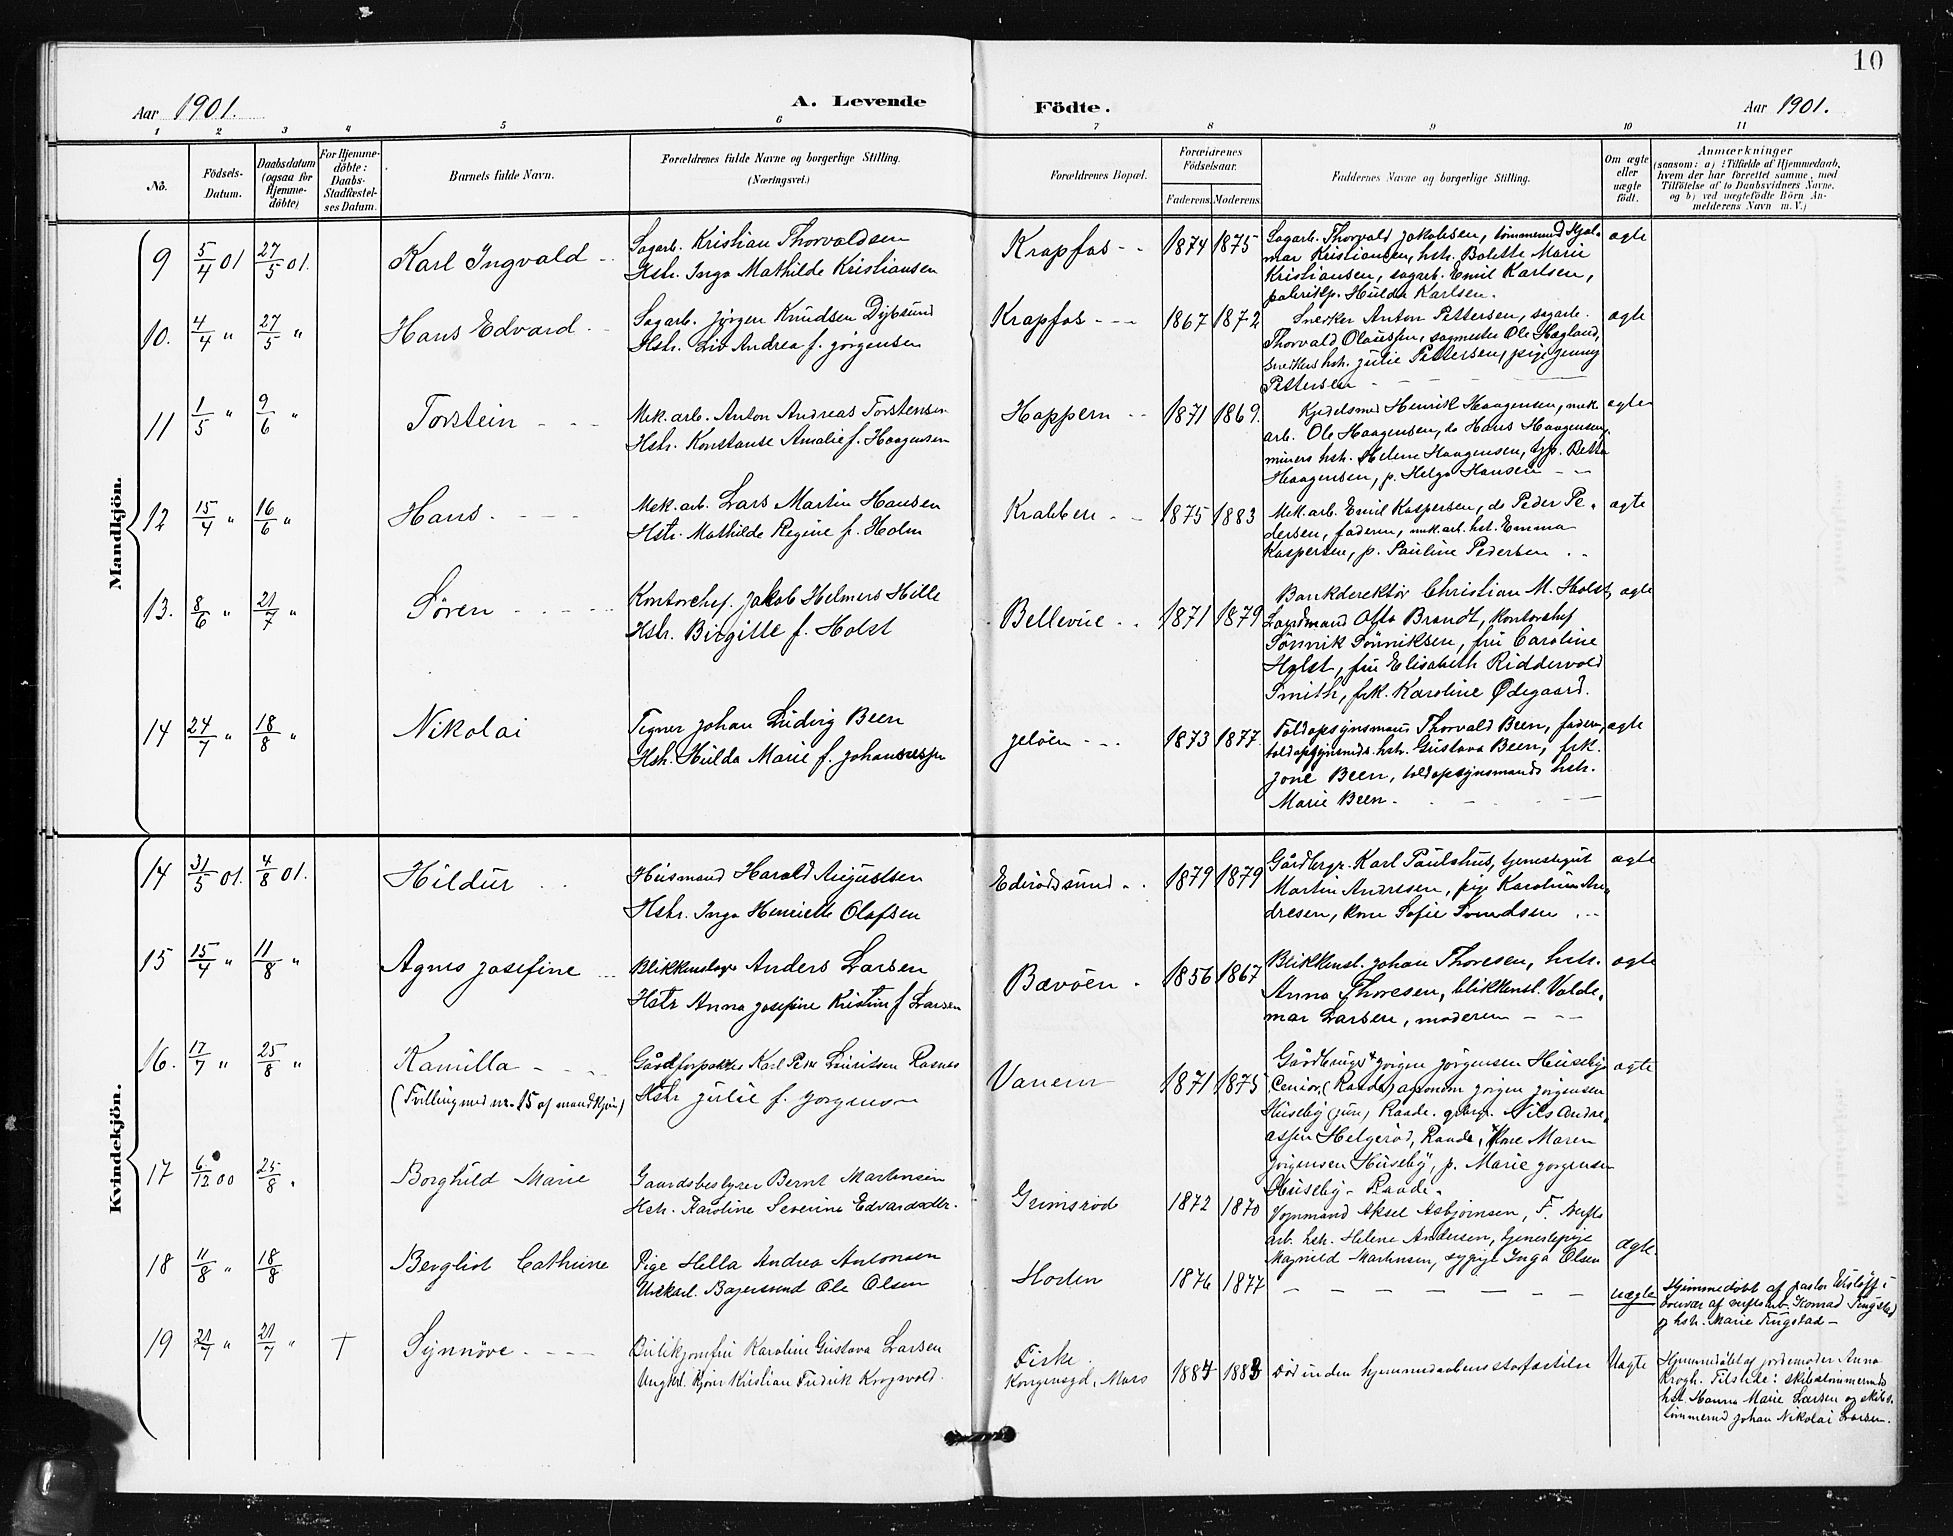 10
Aar 1901.
A. Levende
Födte.
Aar 1901.
1 2 3 4 5 6 7 8 9 10 11
Nö.
Födsels-
Datum.
Daabsdatum
(ogsaa for
Hjemme-
döbte)
For Hjemme-
döbte:
Daabs-
Stadfæstel-
ses Datum.
Barnets fulde Navn.
Forældrenes fulde Navne og borgerlige Stilling.
(Næringsvei.)
Forældrenes Bopæl.
Forældrenes
Födselsaar.
Faderens. Moderens.
Faddernes Navne og borgerlige Stilling.
Om ægte
eller
uægte
födt.
Anmærkninger
(saasom: a) i Tilfælde af Hjemmedaab,
hvem der har forrettet samme, med
Tilföielse af to Daabsvidners Navne,
og b) ved uægtefödte Börn An-
melderens Navn m. V.)
Mandkjön.
9 5/4 01 27/5 01. Karl Ingvald
Sagarb. Kristian Thorvaldsen
Hstr. Inga Mathilde Kristiansen
Krapfos 1874 1875
Sagarb. Thorvald Jakobsen, tømmermd Hjal-
mar Kristiansen, hstr. Bolette Marie
Kristiansen, sagarb. Emil Karlsen,
fabrikp. Hulda Karlsen.
ægte
10. 4/4 " 27/5 " Hans Edvard
Sagarb. Jørgen Knudsen Dybsund
Hstr. Liv Andrea f. Jörgensen
Krapfos 1867 1872
Snedker Anton Pettersen, sagarb.
Thorvald Olaussen, sagmester Ole Hagland,
snedkers hst. Julie Pettersen, pige Jenny
Pettersen
ægte
11 1/5 " 9/6 " Torstein
Mek. arb. Anton Andreas Torstensen
Hstr. Konstanse Amalie f. Haagensen
Hoppern 1871 1869.
Kjedelsmed Henrik Haagensen, mek.
arb. Ole Haagensen, do Hans Haagensen,
miners hst. Helene Haagensen, Betta
Haagensen, p. Helga Hansen
ægte
12 15/4 " 16/6 " Hans
Mek. arb. Lars Martin Hansen
Hstr. Mathilde Regine f. Holm
Krabben 1875 1883
Mek. arb. Emil Kaspersen, do Peder Pe-
dersen, faderen, mek. arb. hst. Emma
Kaspersen, p. Pauline Pedersen
ægte
13. 8/6 " 21/7 " Sören
Kontorchef. Jakob Helmers Hille
Hstr. Birgitte f. Holst
Bellevue 1871 1879
Bankderektör Christian M. Holst,
Landmand Otto Brandt, Kontorchef
Sönnik Sönniksen, fru Caroline
Holst, fru Elisabeth Riddervold
Smith, frk. Karoline Ødegaard.
ægte
14 24/7 " 18/8 " Nikolai
Tegner Johan Ludvig Been
Hstr. Hulda Marie f. Johannessen
Jelöen 1873 1877
Toldopsynsmand Thorvald Been, faderen,
toldopsynsmds. hstr. Gustava Been, frk.
Jone Been, toldopsynsmands hstr.
Marie Been.
ægte
Kvindekjön.
14 31/5 01. 4/8 01. Hildur
Husmand Harald Augustsen
Hstr. Inga Henriette Olafsen
Ederödssund 1879 1879
Gårdbrgr. Karl Paulshus, tjenestegut
Martin Andresen, pige Karoline An-
dresen, kone Sofie Svendsen
ægte
15 15/4 " 11/8 " Agnes Josefine
Blikkenslager Anders Larsen
Hstr Anna Josefine Kristine f. Larsen
Bævöen 1856 1867
Blikkensl. Johan Thoresen, hstr.
Anna Thoresen, blikkensl. Valde-
mar Larsen, moderen
ægte
16. 17/7 " 25/8 " Kamilla
(Tvilling med nr. 15 af mandkjön)
Gårdforpakter Karl Peter Lauritsen Rosnes
Hstr Julie f. Jorgensen
Vanem 1871 1875
Gårdbruger Jørgen Jörgensen Huseby
Cenior, (Raade) agronom Jörgen Jörgensen
Huseby (jun) Raade. gbrgr. Nils Andre-
assen Helgeröd, Raade, Kone Maren
Jörgensen Huseby, p. Marie Jorgensen
Huseby - Raade.
ægte
17 6/12 00 25/8 " Borghild Marie
Gaardsbestyrer Bernt Martinsen
Hstr. Karoline Severine Edvardsdtr.
Grimsröd 1872 1870
Vognmand Aksel Asbjörnsen, F. Verfts
arb. hst. Helene Andersen, tjenestepige
Magnild Martinsen, sypige Inga Olsen
ægte.
18 11/8 " 18/8 Bergliot Cathrine
Pige Hilla Andrea Antonsen
Ole Olsen
Hoden 1876 1877
uægte
Hjemmedöbt af pastor i
nærvær af verftsarb. Konrad Tingstad
og hstr. Marie Tingstad
19 21/7 " 21/7 " † Synnöve
Butikjomfru Karoline Gustava Larsen
Ungkarl Kristian Fredrik Krogsvold.
Kongensgd. Moss 1884 1883
död inden hjemmedaabens stadfæstelse
Uægte
Hjemmedöbt af jordemoder Anna
Krogh. Tilstede: skibstömmermds
hst. Hanna Marie Larsen og skibs-
tömmermd Johan Nikolai Larsen.